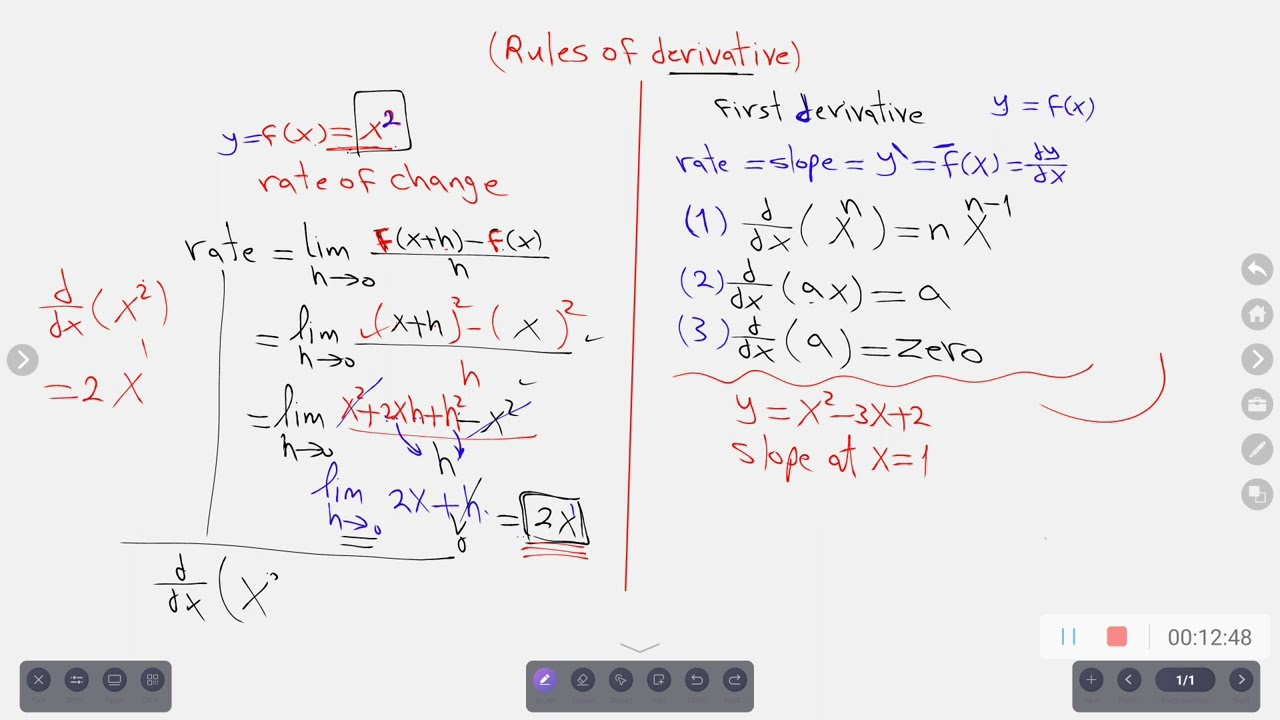 (Rules of derivative)
y=f(x)=x²
rate of change
rate = lim h→0 F(x+h)-F(x) / h
= lim h→0 (x+h)²-(x)² / h
= lim h→0 x²+2xh+h²-x² / h
lim h→0 2x+h = 2x
0
d/dx (x²)
1
=2X
d/dx (X
First derivative y = F(x)
rate = slope = y` = F(x) = dy/dx
(1) d/dx (Xⁿ) = n Xⁿ⁻¹
(2) d/dx (ax) = a
(3) d/dx (a) = Zero
y = X²-3X+2
Slope at X=1
00:12:48
1/1